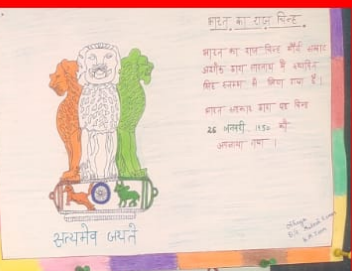 भारत का राज चिन्ह
भारत का राज चिन्ह मौर्य सम्राट
अशोक द्वारा सारनाथ में स्थापित
सिंह स्तम्भ से लिया गया है।
भारत सरकार द्वारा यह चिन्ह
26 जनवरी 1950 को
अपनाया गया।
सत्यमेव जयते